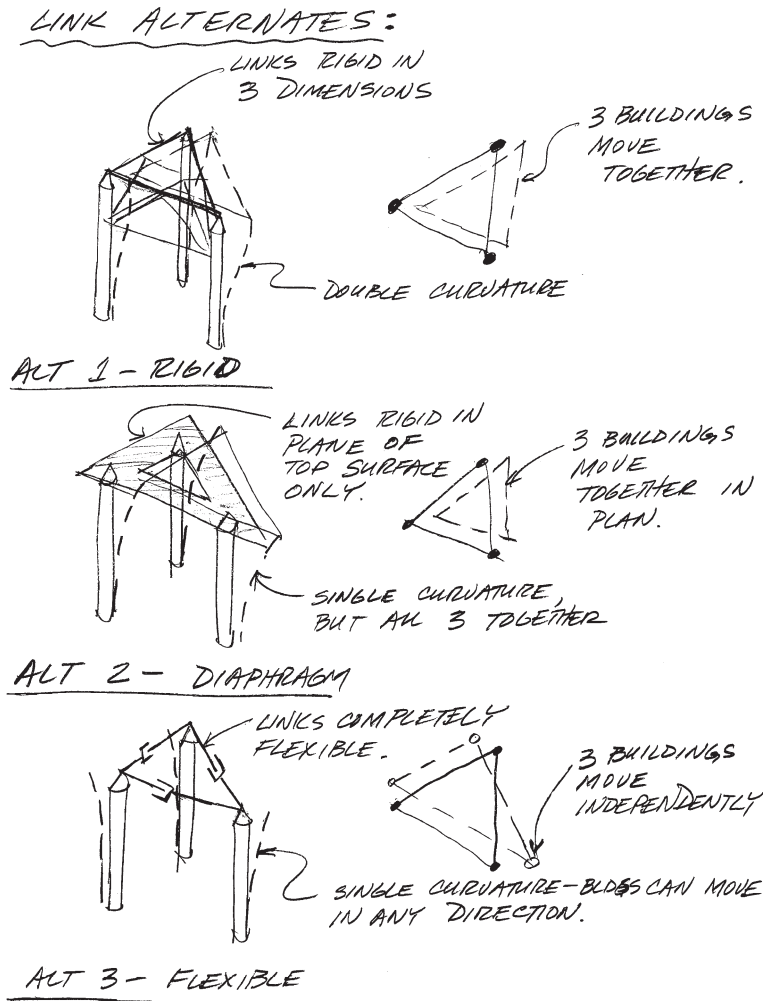 LINK ALTERNATES:
LINKS RIGID IN
3 DIMENSIONS
3 BUILDINGS
MOVE
TOGETHER.
DOUBLE CURVATURE
ALT 1 - RIGID
LINKS RIGID IN
PLANE OF
TOP SURFACE
ONLY.
3 BUILDINGS
MOVE
TOGETHER IN
PLAN.
SINGLE CURVATURE,
BUT ALL 3 TOGETHER
ALT 2 - DIAPHRAGM
LINKS COMPLETELY
FLEXIBLE.
3 BUILDINGS
MOVE
INDEPENDENTLY
SINGLE CURVATURE-BLDGS CAN MOVE
IN ANY DIRECTION.
ALT 3 - FLEXIBLE